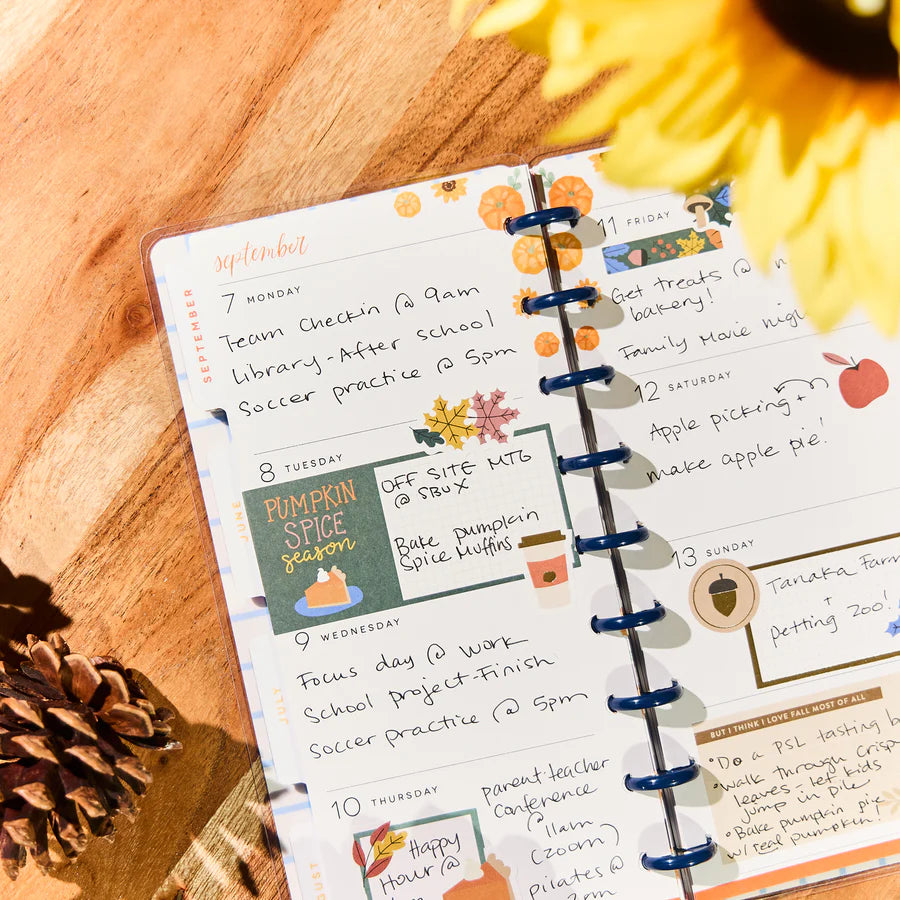 september
SEPTEMBER
7 MONDAY
Team Checkin @ 9am
Library-After school
Soccer practice @ 5pm
8 TUESDAY
PUMPKIN
SPICE
season
OFF SITE MTG
@ SBUX
Bake pumpkin
Spice Muffins
JUNE
9 WEDNESDAY
Focus day @ work
School project-Finish
Soccer practice @ 5pm
JULY
10 THURSDAY
Happy
Hour @
parent-teacher
Conference
@
11am
(zoom)
pilates @
11 FRIDAY
Get treats @
bakery!
Family Movie
12 SATURDAY
Apple picking +
make apple pie!
13 SUNDAY
Tanaka
+
petting zoo!
BUT I THINK I LOVE FALL MOST OF ALL
•Do a PSL tasting
•walk through
leaves - let kids
jump in pile
•Bake pumpkin pie
w/ real pumpkin!